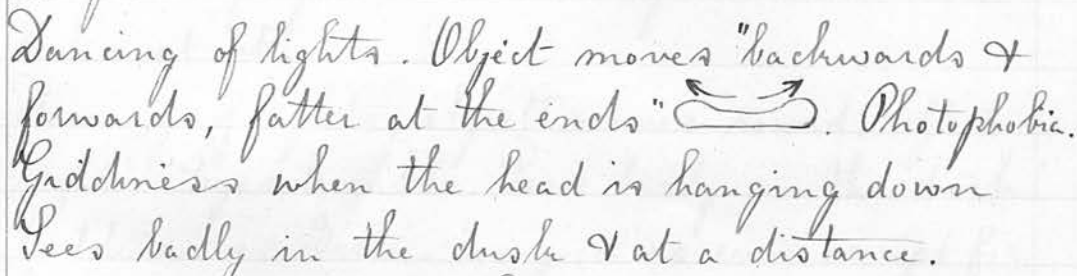 Dancing of lights. Object moves "backwards &
forwards, fatter at the ends" . Photophobia.
Giddiness when the head is hanging down
Sees badly in the dusk & at a distance.